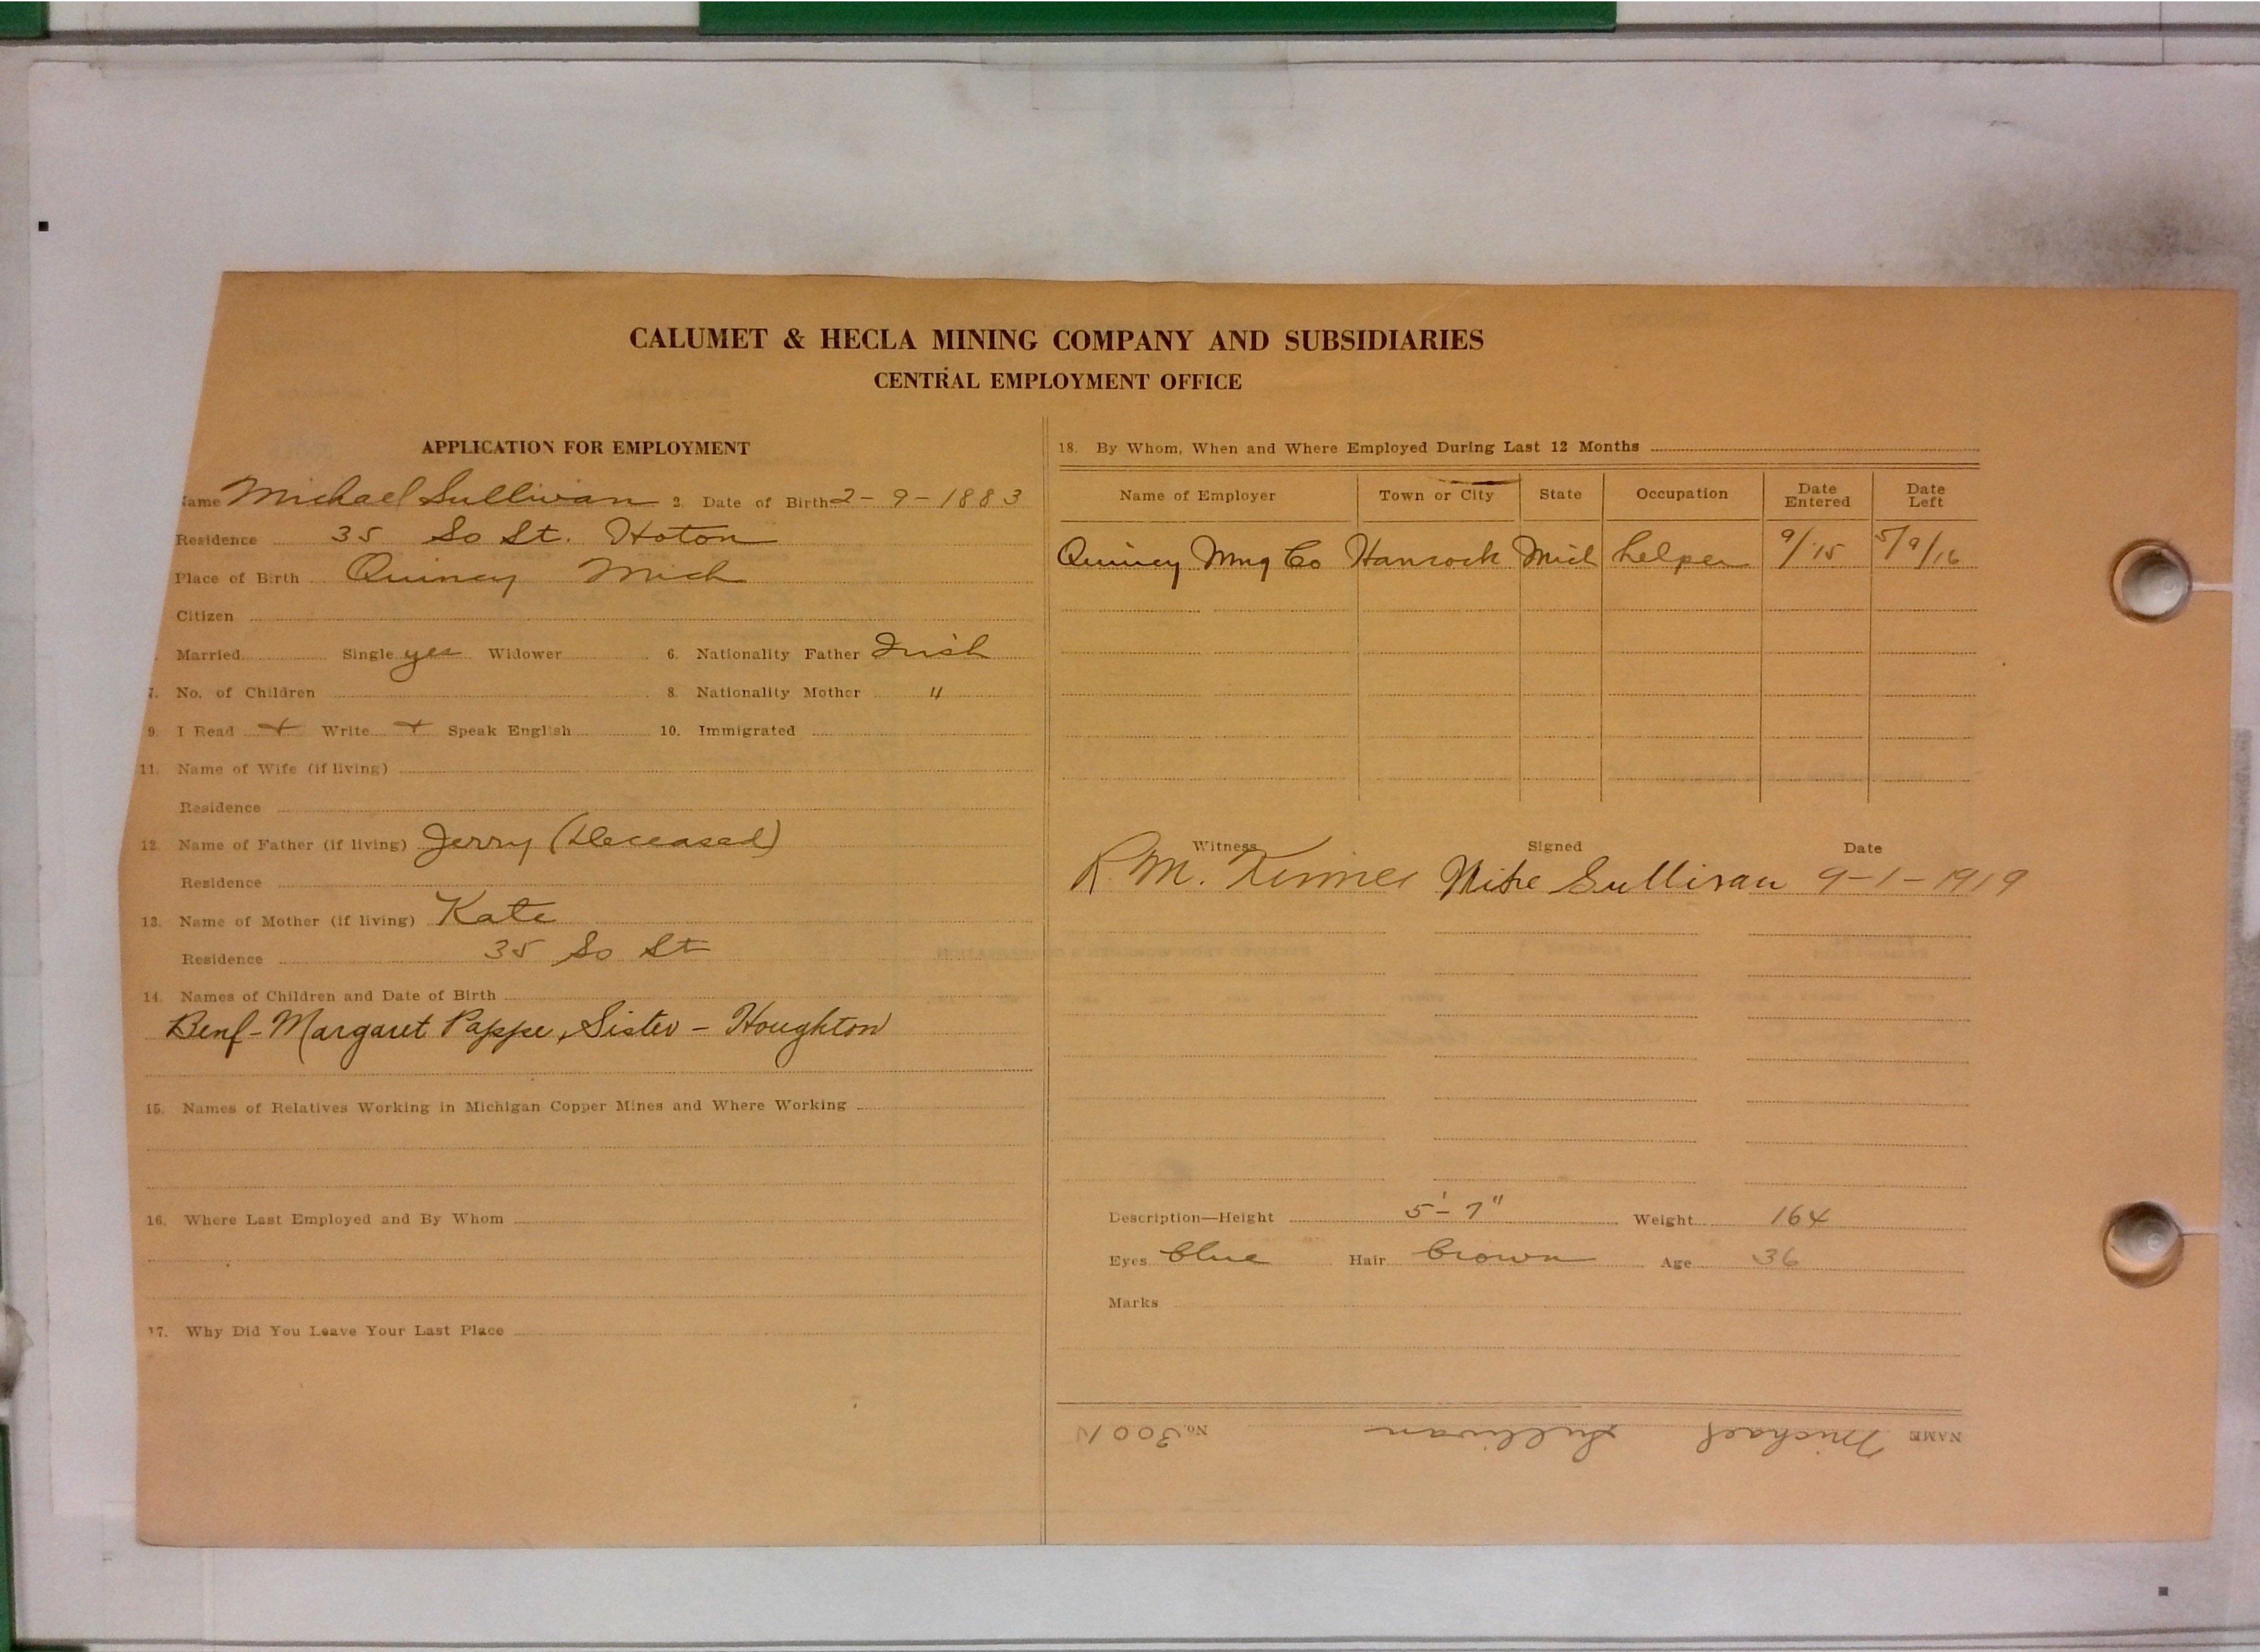 CALUMET & HECLA MINING COMPANY AND SUBSIDIARIES
CENTRAL EMPLOYMENT OFFICE
APPLICATION FOR EMPLOYMENT
Name Michael Sullivan 2. Date of Birth 2-9-1883
Residence 35 So St. Hoton
Place of Birth Quincy Mich
Citizen
Married Single yes Widower 6. Nationality Father Irish
7. No. of Children 8. Nationality Mother "
9. I Read + Write + Speak English 10. Immigrated
11. Name of Wife (if living)
Residence
12. Name of Father (if living) Jerry (Deceased)
Residence
13. Name of Mother (if living) Kate
Residence 35 So St
14. Names of Children and Date of Birth
Benf - Margaret Pappe, Sister - Houghton
15. Names of Relatives Working in Michigan Copper Mines and Where Working
16. Where Last Employed and By Whom
17. Why Did You Leave Your Last Place
18. By Whom, When and Where Employed During Last 12 Months
Name of Employer Town or City State Occupation Date Entered Date Left
Quincy Mng Co Hancock Mich helper 9/15 5/9/16
Witness Signed Date
R. M. Mike Sullivan 9-1-1919
Description—Height 5'-7" Weight 164
Eyes blue Hair brown Age 36
Marks
NAME Michael Sullivan No. 300